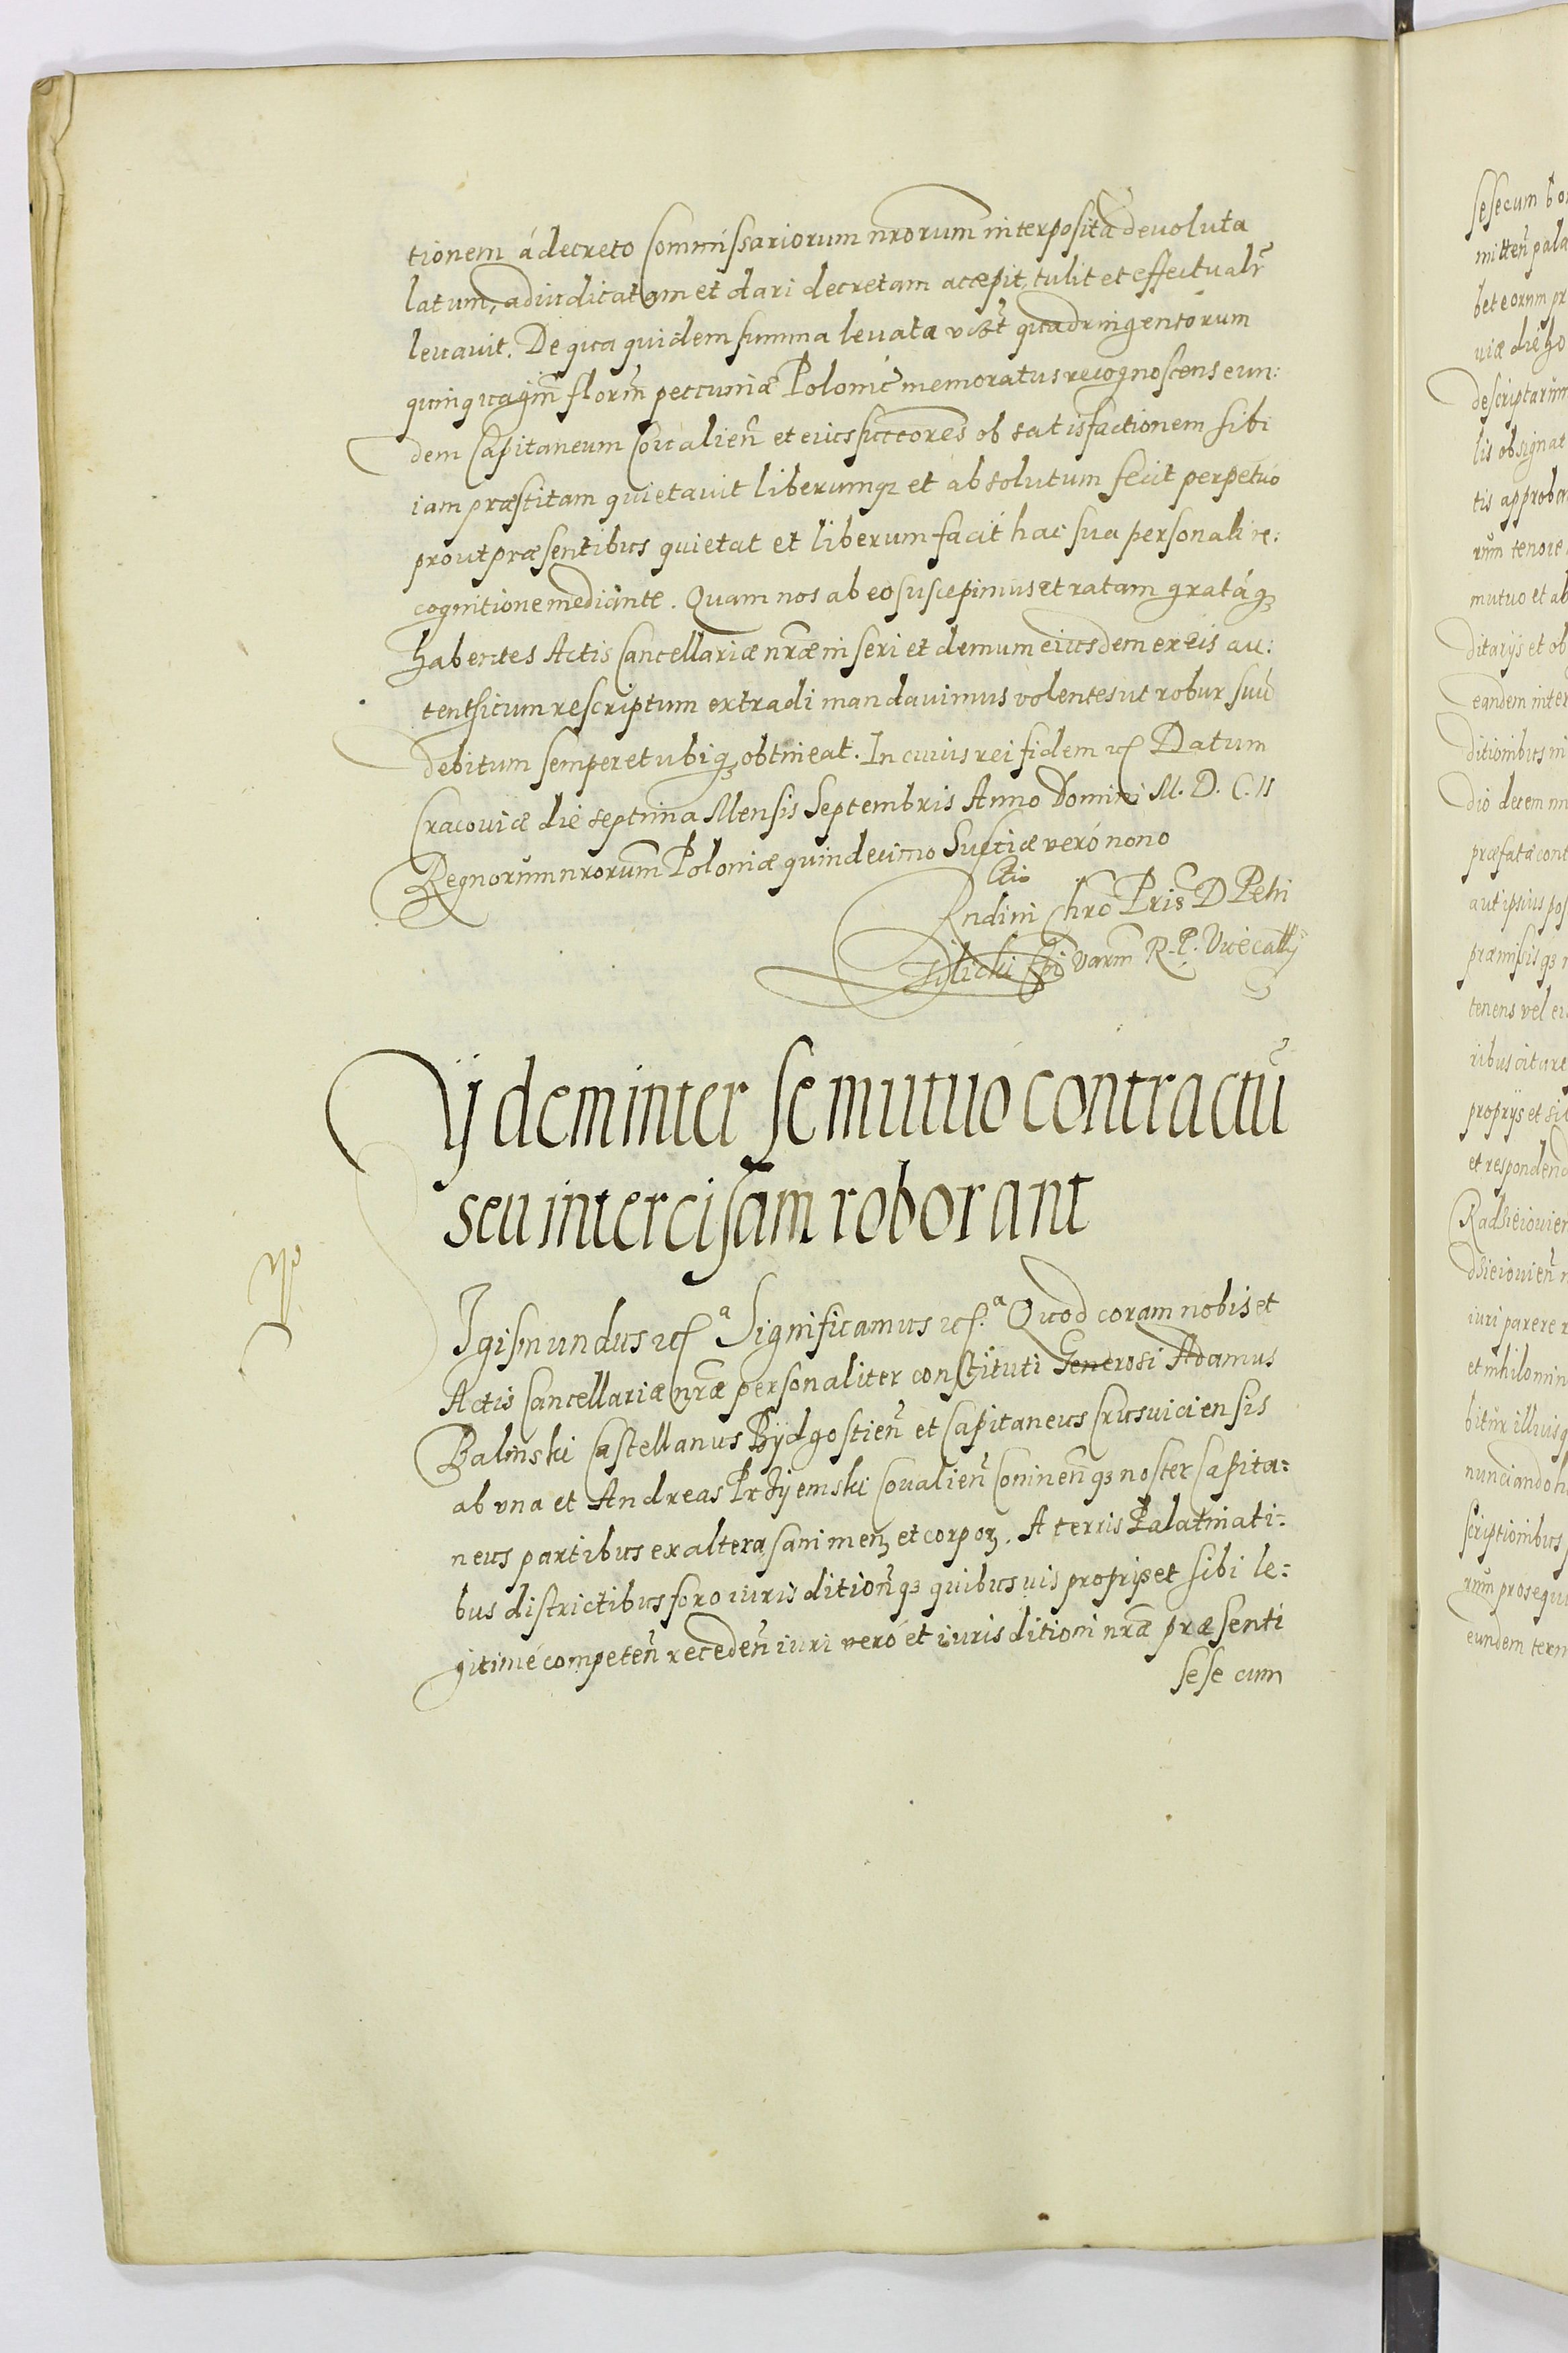 tionem á decreto Commissariorum nrorum interposita devoluta
latum, adiudicatam et dari decretam accepit, tulit et effectualr
levavit. De qua quidem summa levata vidzt quadringentorum
quinquagin florin peccuniæ Polonic memoratus recognoscens eun:
dem Capitaneum Covalien et eius succores ob satisfactionem sibi
iam præstitam quietavit liberumqz et absolutum fecit perpetuó
prout præsentibus quietat et liberum facit hac sua personali re:
cognitione mediante. Quam nos ab eo suscepimus et ratam gratáqz
habentes Actis Cancellariæ nræ inseri et demum eiusdem ex eis au:
tenthicum rescriptum extradi mandavimus volentes ut robur suū
debitum semper et ubiqz obtineat. In cuius rei fidem etc Datum
Cracoviæ die septima Mensis Septembris Anno Domini M. D. C. II
Regnorum nrorum Poloniæ quindecimo Sueciæ veró nono
Rndini Chro Pris D Petri
Tilicki Epi Varm R. P. Vicecallrij
Iijdem inter se mutuó contractū
seu intercisam roborant
Igismundus etc a Significamus etc. a Quod coram nobis et
Actis Cancellariæ nræ personaliter constituti Generosi Adamus
Balinski Castellanus Bÿdgostien et Capitaneus Crusuiciensis
ab vna et Andreas Przÿemski Covalien Coninenqz noster Capita:
neus partibus ex altera sani menz et corpor. A terris Palatinati:
bus districtibus foro iurisditionqz quibusuis proprijs et sibi le:
gitimé competen receden iuri veró et iurisditioni nræ præsenti
sese cum
sese cum
mitten pala
descriptarum
lis obsignat
tis approba
rum tenore
mutuo et ab
ditarijs et ob
eandem inter
ditionibus
dio decem
præfata cont
aut ipsius pos
præmissisqz
tenens vel
ribus citare
proprijs et
et respondend
Radzieiovien
dzieiovien
iuri parere
et nihilomin
nunciando
scriptionibus
rum prosequ
eundem term